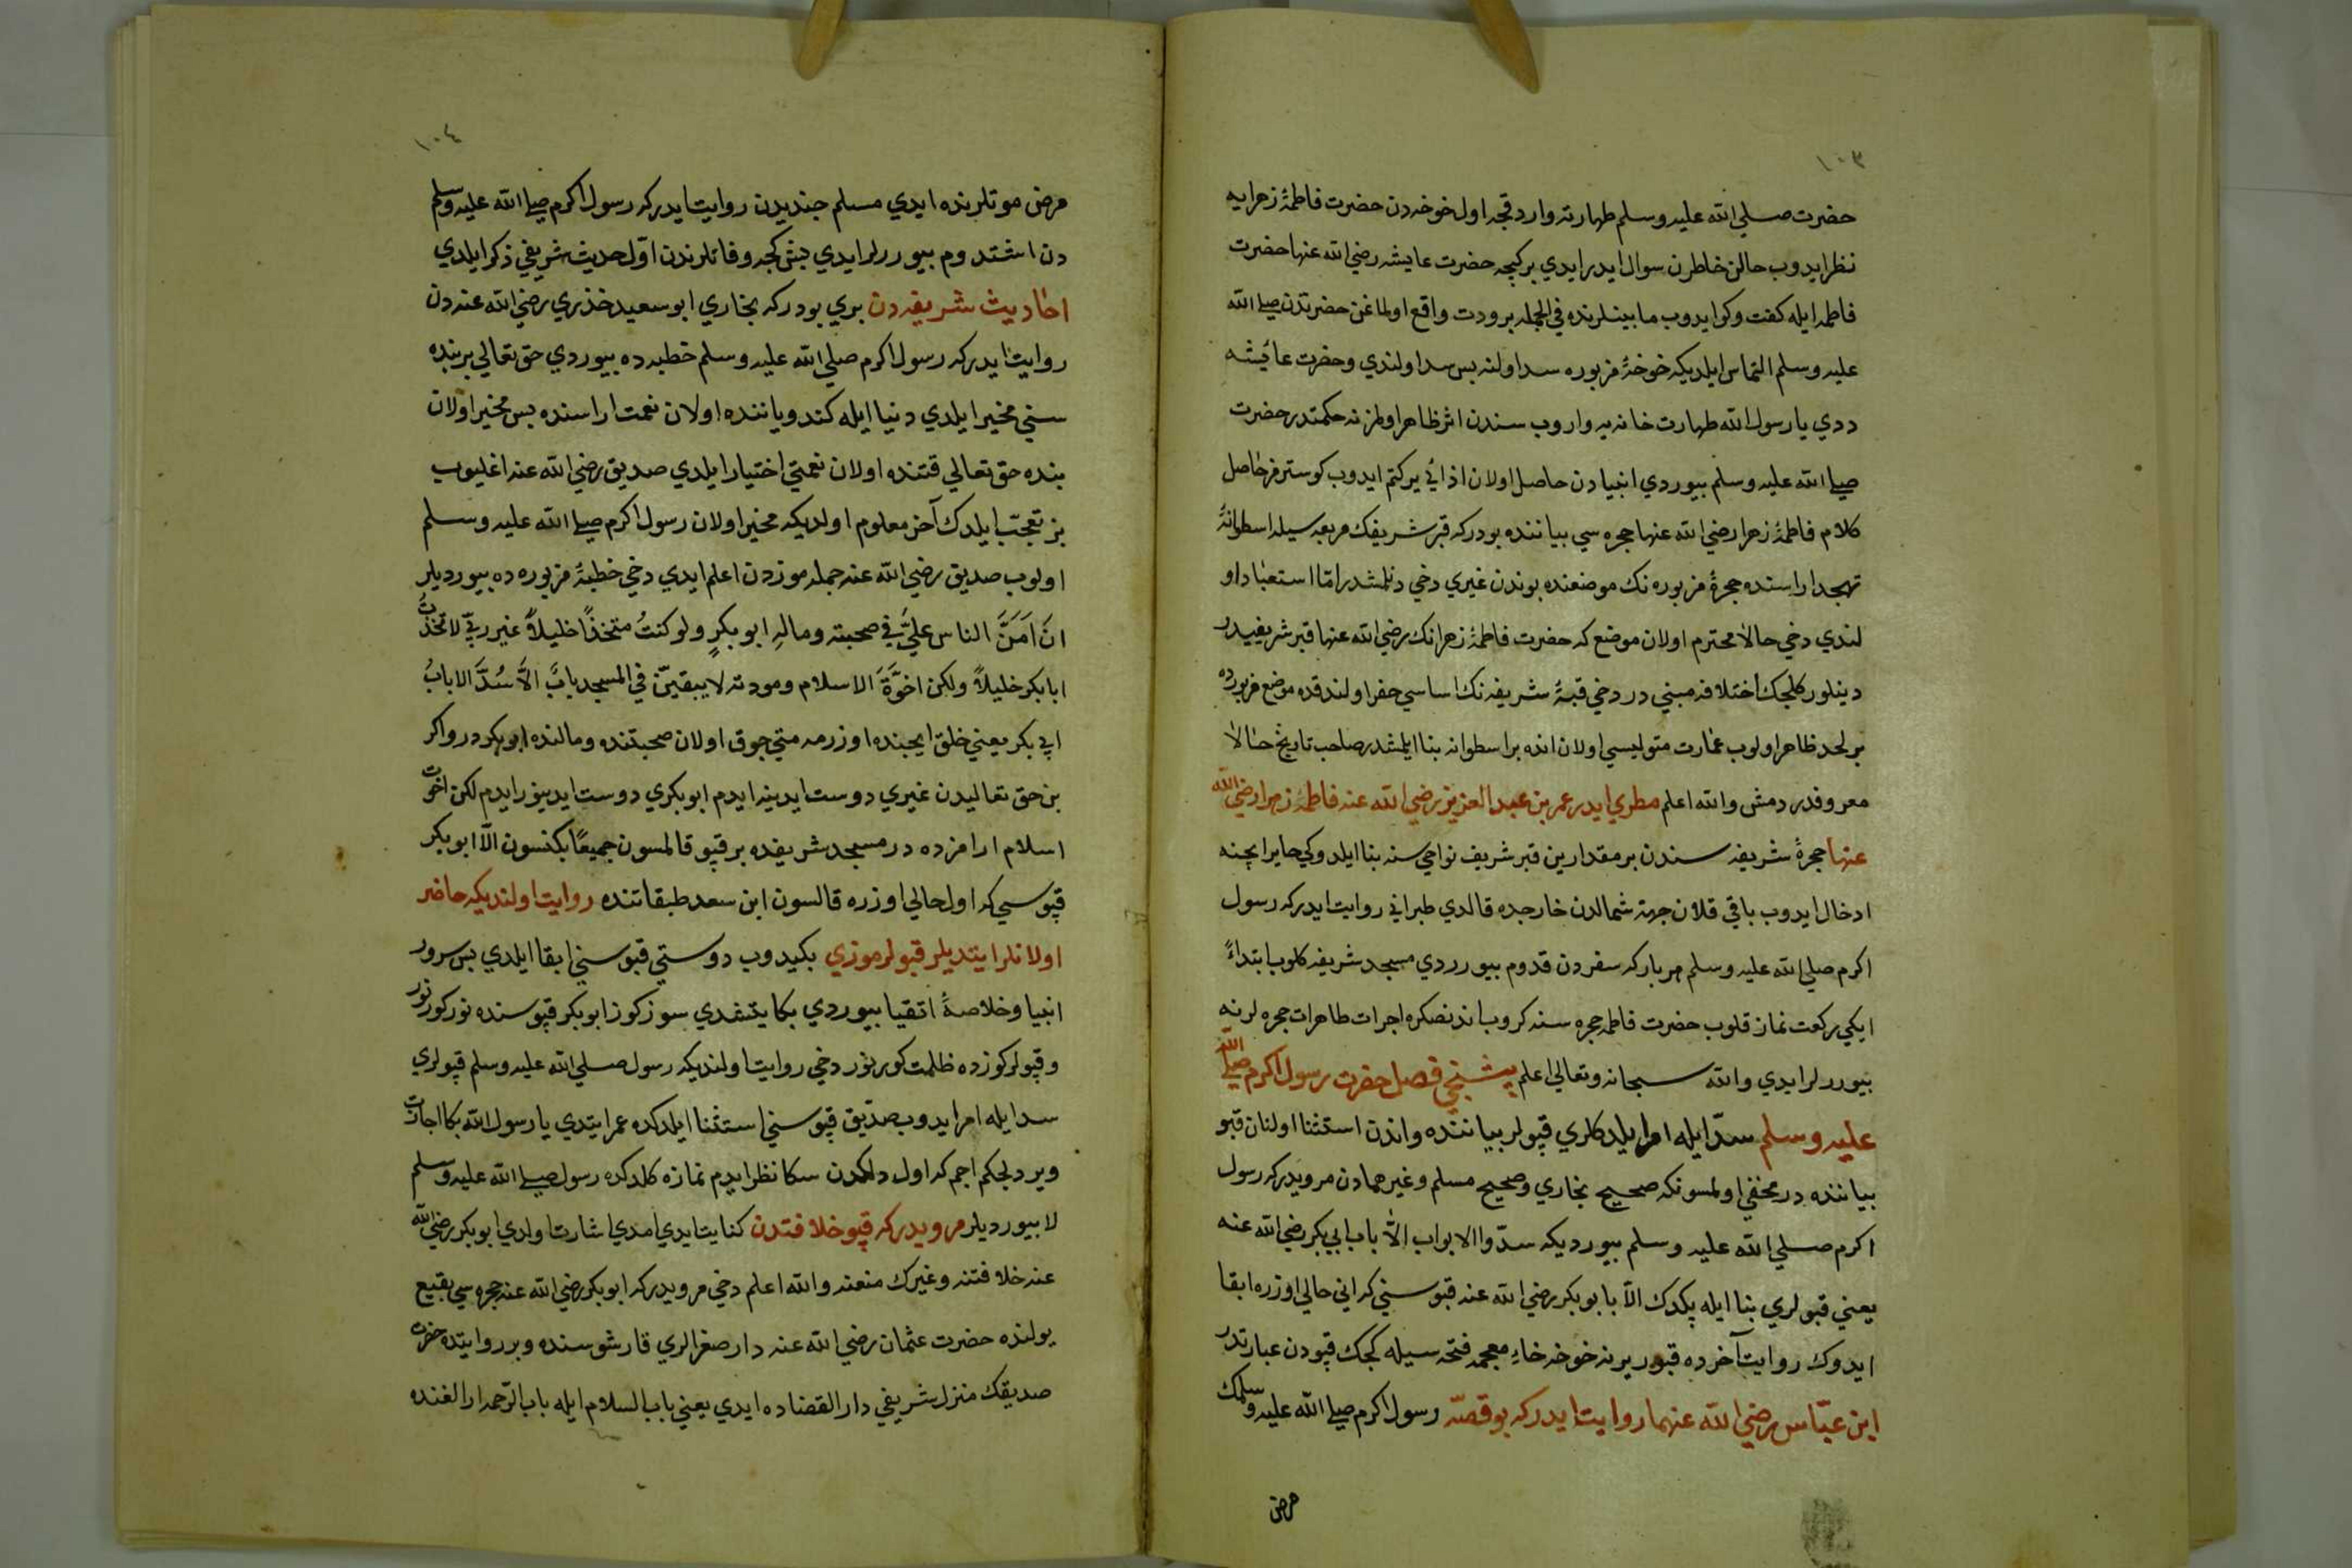 ١٠٣
حضرت صلي الله عليه وسلم طهارته واردقجه اول خوخه دن حضرت فاطمۀ زهرايه
نظر ايدوب حالن خاطرن سوال ايدرايدي بركيجه حضرت عايشه رضي الله عنها حضرت
فاطمه ايله كفت وكو ايدوب مابينلرنده في الجمله برودت واقع اولماغن حضرتدن صلي الله
عليه وسلم التماس ايلديكه خوخۀ مزبوره سد اولنه بس سد اولندي وحضرت عائيشه
ددي يا رسول الله طهارت خانه يه واروب سندن اثر ظاهر اولمز نه حكمتدر حضرت
صلي الله عليه وسلم بيوردي انبيادن حاصل اولان اذائي ير كتم ايدوب كوسترمز حاصل
كلام فاطمۀ زهرا رضي الله عنها حجره سي بياننده بودركه قبر شريفك مربعه سيله اسطوانۀ
تهجد اراسنده حجرۀ مزبوره نك موضعنده بوندن غيري دخي دنلمشدر امّا استعباد او
لندي دخي حالا محترم اولان موضع كه حضرت فاطمۀ زهرانك رضي الله عنها قبر شريفيدر
دينلور كلجك اختلافه مبني در دخي قبۀ شريفه نك اساسي حفر اولندقده موضع مزبورده
بر لحد ظاهر اولوب عمارت متوليسي اولان انده بر اسطوانه بنا ايلمشدر صاحب تاريخ حالا
معروفدر دمش والله اعلم مطري ايدر عمر بن عبد العزيز رضي الله عنه فاطمۀ زهرا رضي الله
عنها حجرۀ شريفه سندن بر مقدارين قبر شريف نواحي سنه بنا ايلدوكي حاير ايچنه
ادخال ايدوب باقي قلان جهة شمالدن خارجده قالدي طبراني روايت ايدركه رسول
اكرم صلي الله عليه وسلم هر باركه سفردن قدوم بيورردي مسجد شريفه كلوب ابتداءً
ايكي ركعت نماز قلوب حضرت فاطمه حجره سنه كروب اندنصكره اجرات طاهرات حجره لرنه
بيوررلرايدي والله سبحانه وتعالي اعلم بشنجي فصل حضرت رسول اكرم صلي الله
عليه وسلم سدّ ايله امر ايلدكلري قپولر بياننده واندن استثنا اولنان قپو
بياننده در مخفي اولمسونكه صحيح بخاري وصحيح مسلم وغيرهمادن مرويدركه رسول
اكرم صلي الله عليه وسلم بيورديكه سدّوا الابواب الاّ باب ابي بكر رضي الله عنه
يعني قپولري بنا ايله پكدك الاّ باب ابو بكر رضي الله عنه قپوسني كه اني حالي اوزره ابقا
ايدوك روايت آخرده قپو يرينه خوخه خاءِ معجمه فتحه سيله كجك قپودن عبارتدر
ابن عبّاس رضي الله عنهما روايت ايدركه بو قصّه رسول اكرم صلي الله عليه وسلمك
مرض
١٠٤
مرض موتلرنده ايدي مسلم جنديدن روايت ايدركه رسول اكرم صلي الله عليه وسلم
دن اشتدوم بيوررلرايدي بش كجه وفاتلرندن اوّل حديث شريفي ذكر ايلدي
احاديث شريفه دن بري بودركه بخاري ابو سعيد خذري رضي الله عنه دن
روايت ايدركه رسول اكرم صلي الله عليه وسلم خطبه ده بيوردي حق تعالي بر بنده
سني مخير ايلدي دنيا ايله كندو ياننده اولان نعمت اراسنده بس مخير اولان
بنده حق تعالي قتنده اولان نعمتي اختيار ايلدي صديق رضي الله عنه اغليوب
بز تعجّب ايلدك آخر معلوم اولديكه مخير اولان رسول اكرم صلي الله عليه وسلم
اولوب صديق رضي الله عنه جمله موزدن اعلم ايدي دخي خطبۀ مزبوره ده بيورديلر
انَ اَمَنَّ الناس عليَّ في صحبته ومالهِ ابو بكرٍ ولو كنتُ متخذًا خليلاً غير ربّي لاتخذتُ
ابا بكر خليلاً ولكن اخوَّةَ الاسلام ومودته لا يبقيَنّ في المسجد بابَّ الاَّ سُدَّ الا بابُ
ابي بكر يعني خلق ايچنده اوزرمه منتي جوق اولان صحبتنده ومالنده ابو بكردر واكر
بن حق تعاليدن غيري دوست ايدينه ايدم ابو بكري دوست ايدينورايدم لكن اخوت
اسلام ارامزده در مسجد شريفده بر قپو قالمسون جميعًا بكنسون الاّ ابو بكر
قپوسي كه اول حالي اوزره قالسون ابن سعد طبقاتنده روايت اولنديكه حاضر
اولانلر ايتديلر قپولرموزي بكيدوب دوستي قپوسني ابقا ايلدي بس سرور
انبيا وخلاصۀ اتقيا بيوردي بكا يتشدي سوزكوز ابو بكر قپوسنده نور كورنور
وقپولركوزده ظلمت كورينور دخي روايت اولنديكه رسول صلي الله عليه وسلم قپولري
سد ايله امر ايدوب صدّيق قپوسني استثنا ايلدكده عمر ايتدي يا رسول الله بكا اجازت
وير دلجكم اچم كه اول دلكدن سكا نظر ايدم نمازه كلدكده رسول صلي الله عليه وسلم
لا بيورديلر مرويدركه قپو خلافتدن كنايت ايدي امدي اشارت اولدي ابو بكر رضي الله
عنه خلافتنه وغيرك منعنه والله اعلم دخي مرويدركه ابو بكر رضي الله عنه حجره سي بقيع
يولنده حضرت عثمان رضي الله عنه دار صغرالري قارشوسنده وبر روايتده حضرت
صديقك منزل شريفي دار القضاده ايدي يعني باب السلام ايله باب الرّحمه ارالغنده